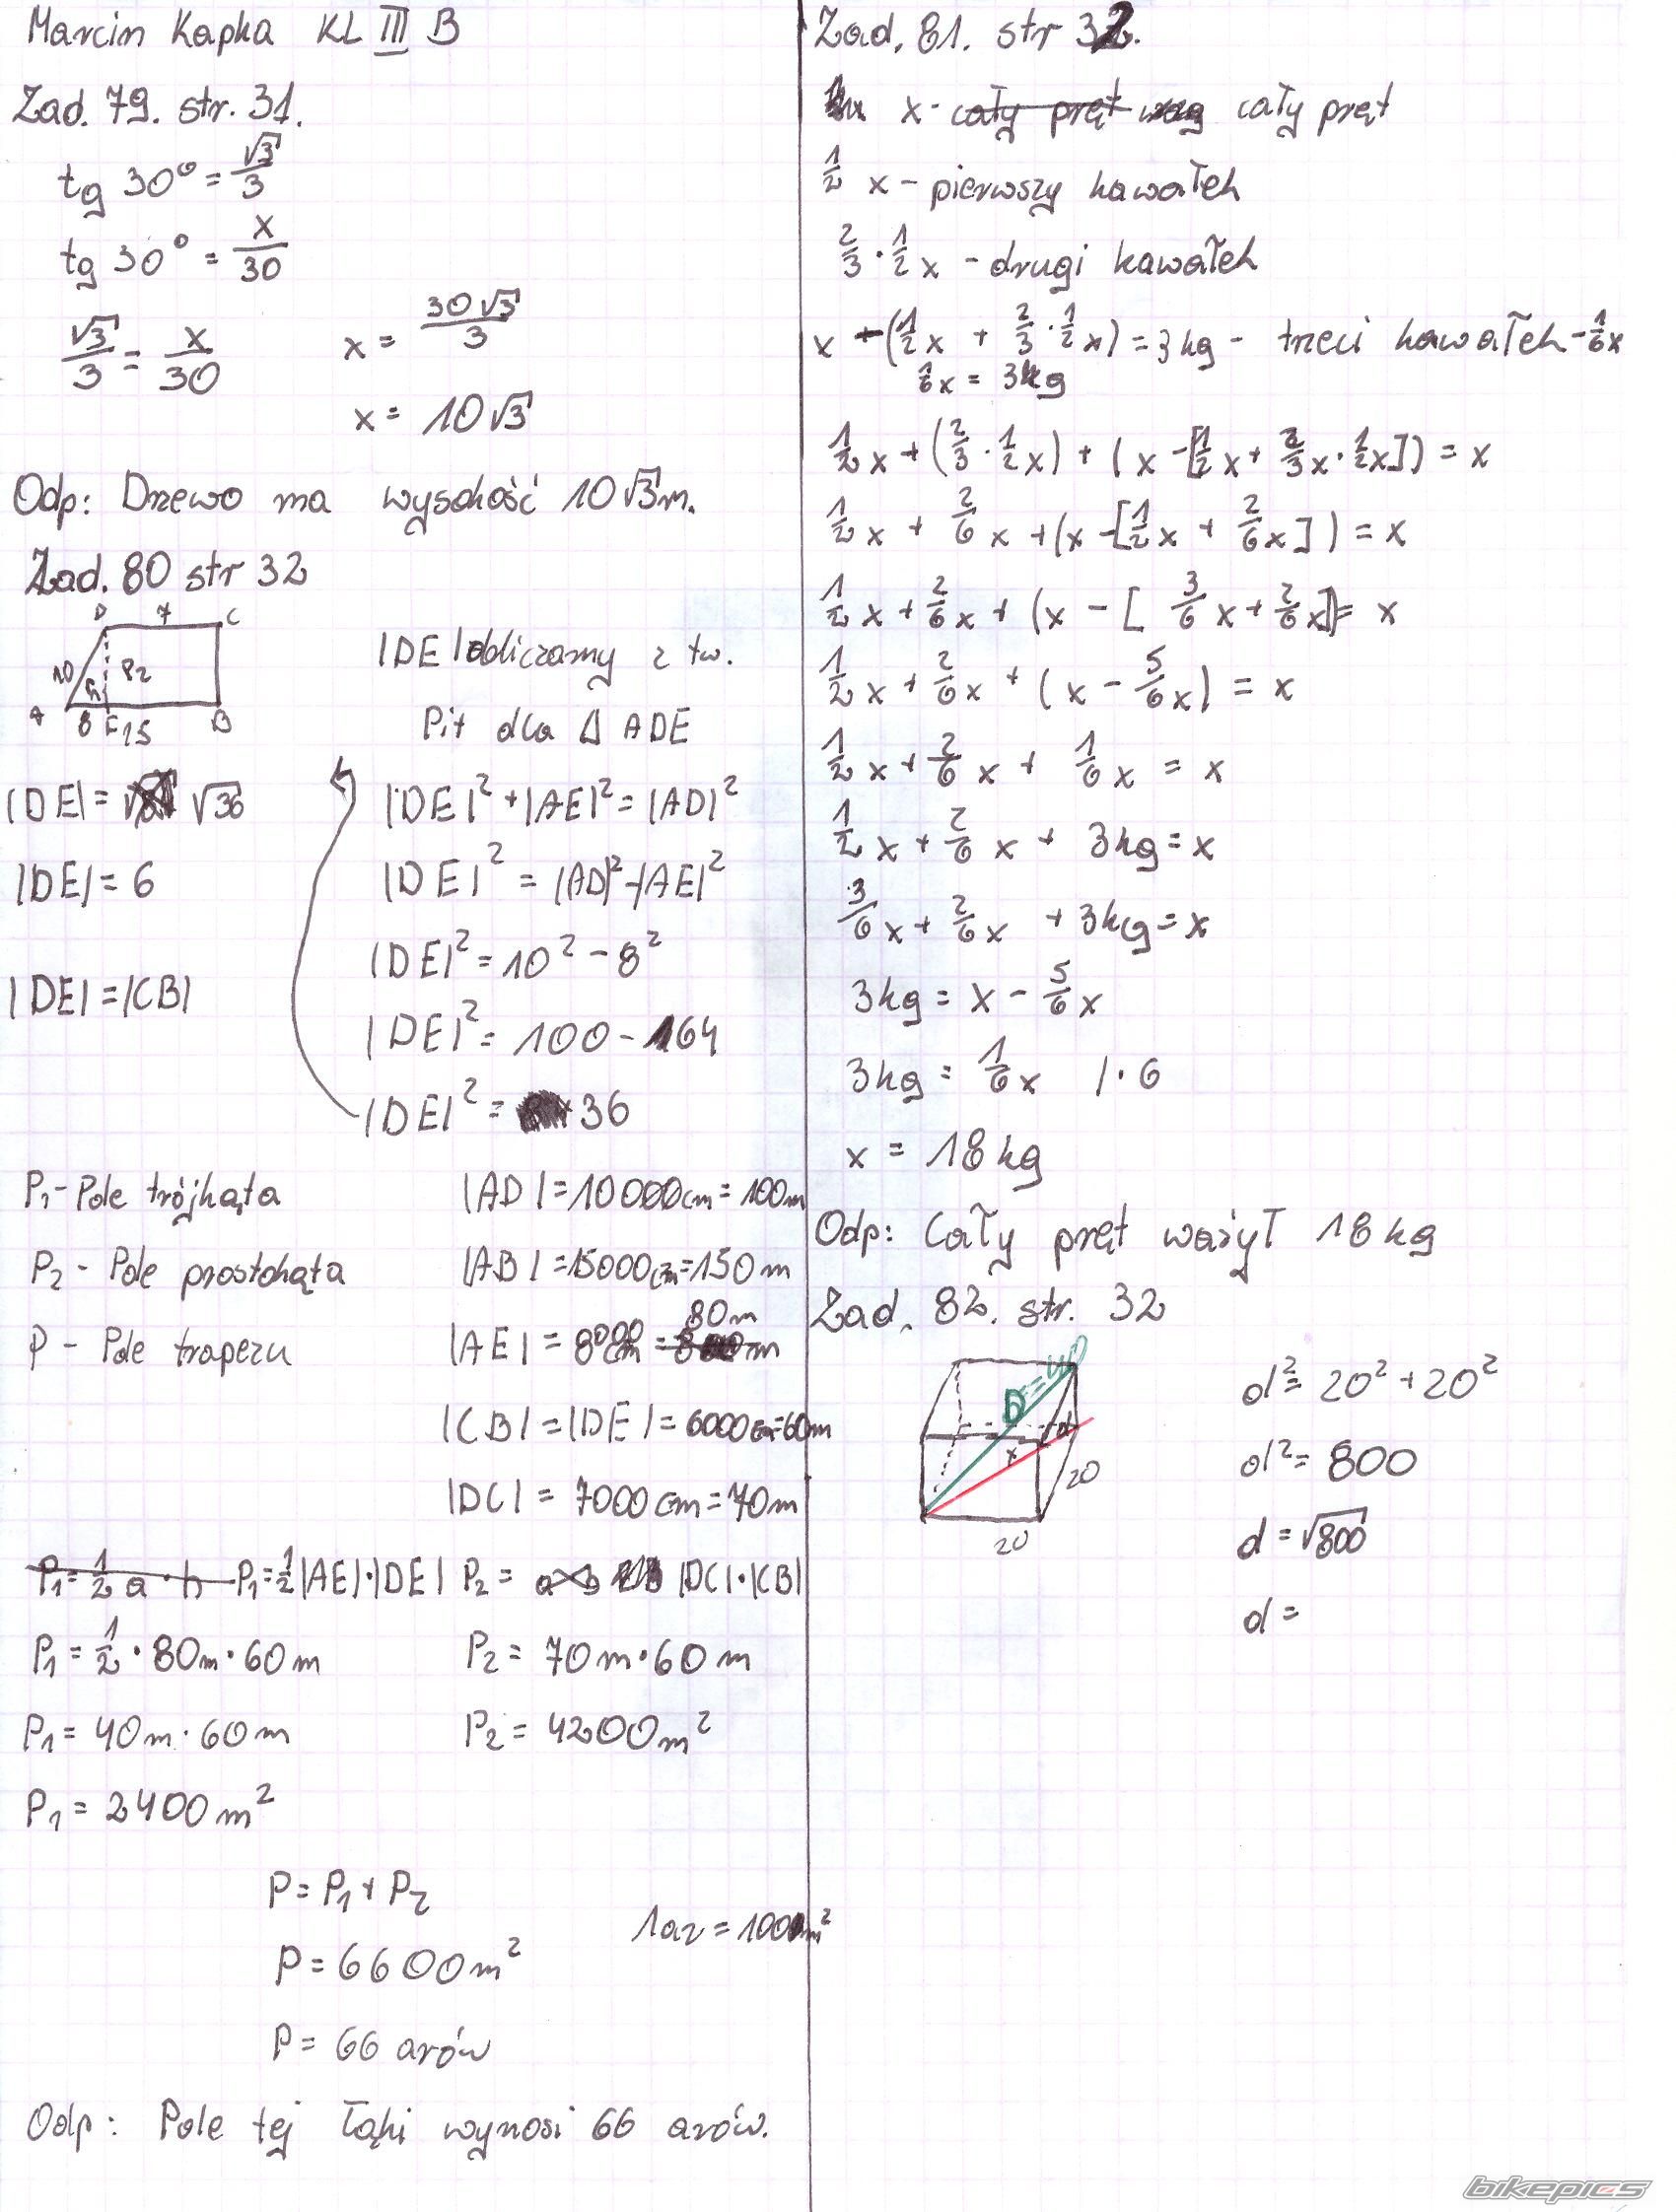 Marcin Kapka KL III B
Zad. 79. str. 31.
tg 30° = √3/3
tg 30° = x/30
√3/3 = x/30
x = 30√3/3
x = 10√3
Odp: Drzewo ma wysokość 10√3m.
Zad. 80 str 32
D 7 C
10 h P2
A 8 E 15 B
|DE| obliczamy z tw.
Pit dla Δ ADE
|DE|² + |AE|² = |AD|²
|DE|² = |AD|² - |AE|²
|DE|² = 10² - 8²
|DE|² = 100 - 64
|DE|² = 36
|DE| = √36
|DE| = 6
|DE| = |CB|
P1 - Pole trójkąta
P2 - Pole prostokąta
P - Pole trapezu
|AD| = 10000cm = 100m
|AB| = 15000cm = 150m
|AE| = 8000cm = 80m
|CB| = |DE| = 6000cm = 60m
|DC| = 7000cm = 70m
P1 = 1/2 a · h P1 = 1/2 |AE| · |DE|
P1 = 1/2 · 80m · 60m
P1 = 40m · 60m
P1 = 2400m²
P2 = |DC| · |CB|
P2 = 70m · 60m
P2 = 4200m²
P = P1 + P2
P = 6600m²
1ar = 100m²
P = 66 arów
Odp: Pole tej łąki wynosi 66 arów.
Zad. 81. str 32.
x - cały pręt cały pręt
1/2 x - pierwszy kawałek
2/3 · 1/2 x - drugi kawałek
x - (1/2x + 2/3 · 1/2x) = 3kg - trzeci kawałek - 1/6x
1/6x = 3kg
1/2x + (2/3 · 1/2x) + (x - [1/2x + 2/3x · 1/2x]) = x
1/2x + 2/6x + (x - [1/2x + 2/6x]) = x
1/2x + 2/6x + (x - [3/6x + 2/6x]) = x
1/2x + 2/6x + (x - 5/6x) = x
1/2x + 2/6x + 1/6x = x
1/2x + 2/6x + 3kg = x
3/6x + 2/6x + 3kg = x
3kg = x - 5/6x
3kg = 1/6x | · 6
x = 18kg
Odp: Cały pręt ważył 18kg
Zad. 82. str. 32
D
d
x
20
20
d² = 20² + 20²
d² = 800
d = √800
d =
bikepics